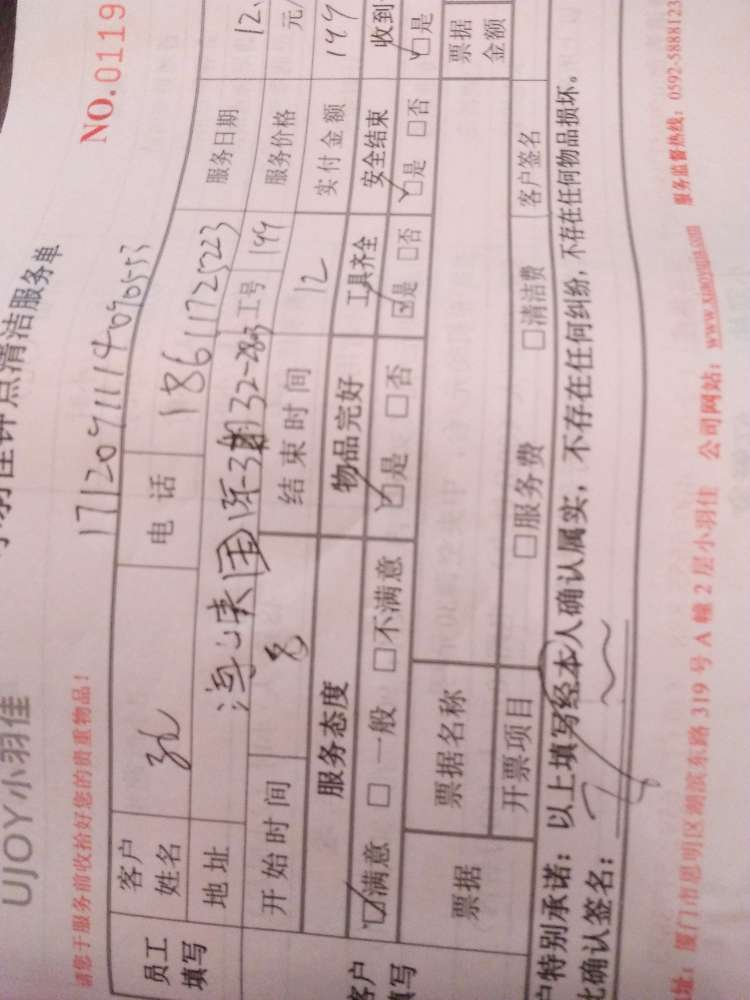 UJOY小羽佳
钟点清洁服务单
请您于服务前收拾好您的贵重物品！
NO.0119
1712091114090553
员工填写
客户姓名
电话 18611725223
服务日期 12.
地址
工号 144
服务价格 元/
开始时间 8
结束时间 12
实付金额 144
客户填写
服务态度
物品完好
工具齐全
安全结束
收到
☑满意 □一般 □不满意
☑是 □否
☑是 □否
☑是 □否
☑是
票据
票据名称
票据金额
开票项目
□服务费 □清洁费
客户签名
户特别承诺：以上填写经本人确认属实，不存在任何纠纷，不存在任何物品损坏。
此确认签名：
址：厦门市思明区湖滨东路 319 号 A 幢 2 层小羽佳 公司网站：www.xiaoyujia.com 服务监督热线：0592-5888123